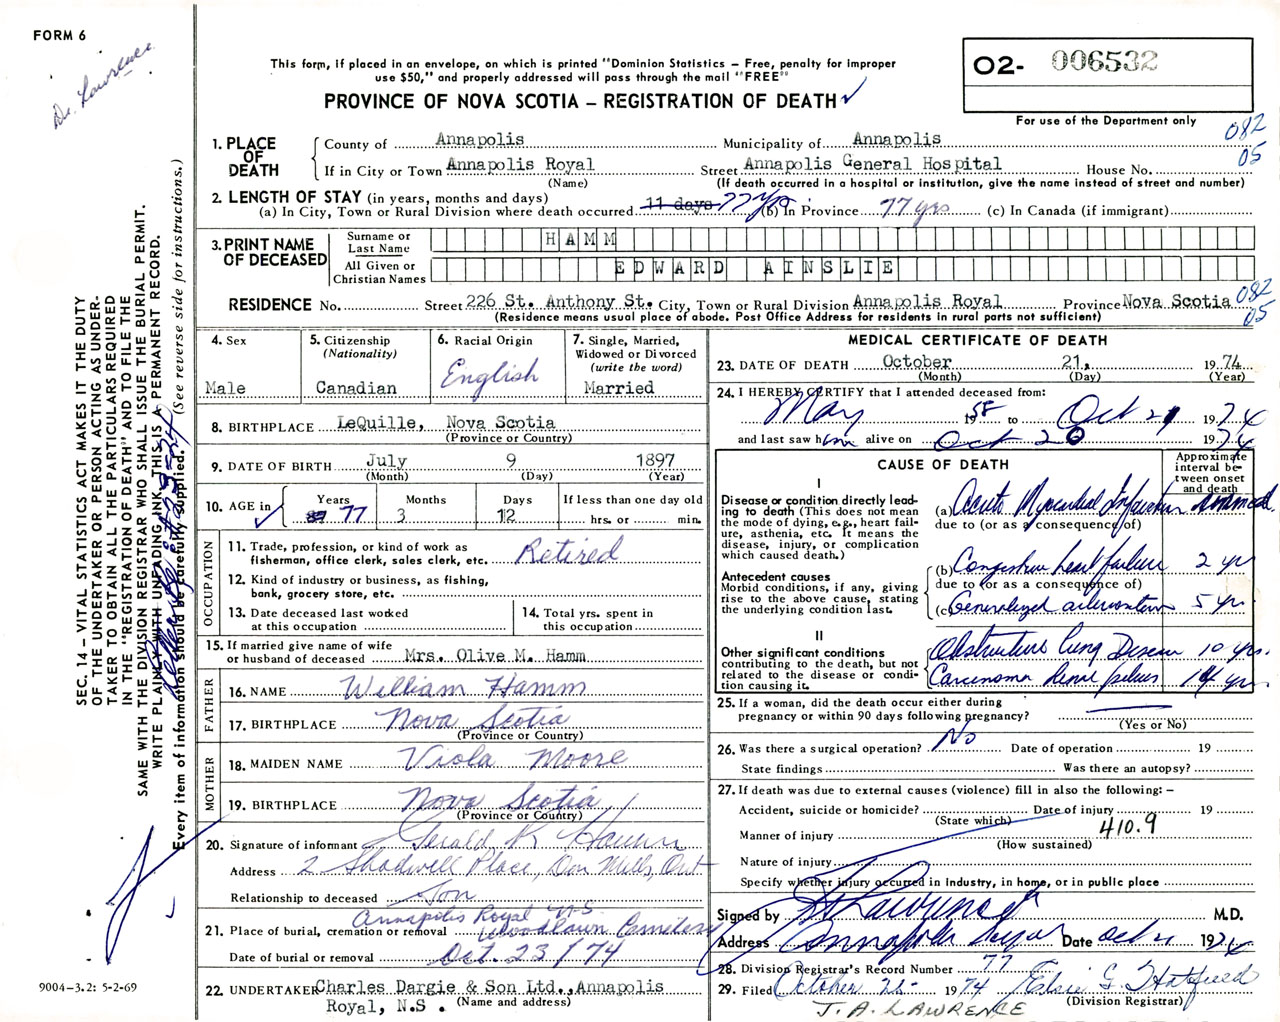 FORM 6
Dr. Lawrence
This form, if placed in an envelope, on which is printed "Dominion Statistics – Free, penalty for improper
use $50," and properly addressed will pass through the mail "FREE"
PROVINCE OF NOVA SCOTIA – REGISTRATION OF DEATH ✓
02- 006532
For use of the Department only
082
05
1. PLACE OF DEATH
County of Annapolis Municipality of Annapolis
If in City or Town Annapolis Royal Street Annapolis General Hospital House No.
(Name) (If death occurred in a hospital or institution, give the name instead of street and number)
2. LENGTH OF STAY (in years, months and days)
(a) In City, Town or Rural Division where death occurred 11 days 77 yrs (b) In Province 77 yrs (c) In Canada (if immigrant)
3. PRINT NAME OF DECEASED
Surname or Last Name HAMM
All Given or Christian Names EDWARD AINSLIE
RESIDENCE No. Street 226 St. Anthony St. City, Town or Rural Division Annapolis Royal Province Nova Scotia
(Residence means usual place of abode. Post Office Address for residents in rural parts not sufficient)
082
05
4. Sex
Male
5. Citizenship
(Nationality)
Canadian
6. Racial Origin
English
7. Single, Married,
Widowed or Divorced
(write the word)
Married
8. BIRTHPLACE LeQuille, Nova Scotia
(Province or Country)
9. DATE OF BIRTH July 9 1897
(Month) (Day) (Year)
10. AGE in ✓
Years Months Days If less than one day old
77 3 12 hrs. or min.
OCCUPATION
11. Trade, profession, or kind of work as
fisherman, office clerk, sales clerk, etc. Retired
12. Kind of industry or business, as fishing,
bank, grocery store, etc.
13. Date deceased last worked
at this occupation
14. Total yrs. spent in
this occupation
15. If married give name of wife
or husband of deceased Mrs. Olive M. Hamm
FATHER
16. NAME William Hamm
17. BIRTHPLACE Nova Scotia
(Province or Country)
MOTHER
18. MAIDEN NAME Viola Moore
19. BIRTHPLACE Nova Scotia
(Province or Country)
20. Signature of informant Gerald R Hamm
Address 2 Shadwell Place, Don Mills, Ont
Relationship to deceased Son
Annapolis Royal N.S.
21. Place of burial, cremation or removal Woodlawn Cemetery
Date of burial or removal Oct. 23/74
22. UNDERTAKER Charles Dargie & Son Ltd., Annapolis
Royal, N.S. (Name and address)
MEDICAL CERTIFICATE OF DEATH
23. DATE OF DEATH October 21, 1974
(Month) (Day) (Year)
24. I HEREBY CERTIFY that I attended deceased from:
May 1958 to Oct 21 1974
and last saw him alive on Oct 20 1974
CAUSE OF DEATH
Approximate
interval be-
tween onset
and death
I
Disease or condition directly lead-
ing to death (This does not mean
the mode of dying, e.g., heart fail-
ure, asthenia, etc. It means the
disease, injury, or complication
which caused death.)
(a) Acute Myocardial Infarction
due to (or as a consequence of)
Antecedent causes
Morbid conditions, if any, giving
rise to the above cause, stating
the underlying condition last.
(b) Congestive heart failure 2 yr
due to (or as a consequence of)
(c) Generalized 5 yr.
II
Other significant conditions
contributing to the death, but not
related to the disease or condi-
tion causing it.
Obstructive Lung Disease 10 yrs.
Carcinoma Renal pelvis 14 yrs.
25. If a woman, did the death occur either during
pregnancy or within 90 days following pregnancy?
(Yes or No)
26. Was there a surgical operation? No Date of operation 19
State findings Was there an autopsy?
27. If death was due to external causes (violence) fill in also the following: –
Accident, suicide or homicide? Date of injury 19
(State which)
Manner of injury 410.9
(How sustained)
Nature of injury
Specify whether injury occurred in industry, in home, or in public place
Signed by Lawrence M.D.
Address Annapolis Royal Date Oct 21 1974
28. Division Registrar's Record Number 77
29. Filed October 25 1974 Elsie G. Hatfield
(Division Registrar)
J. A. LAWRENCE
SEC. 14 – VITAL STATISTICS ACT MAKES IT THE DUTY
OF THE UNDERTAKER OR PERSON ACTING AS UNDER-
TAKER TO OBTAIN ALL THE PARTICULARS REQUIRED
IN THE "REGISTRATION OF DEATH" AND TO FILE THE
SAME WITH THE DIVISION REGISTRAR WHO SHALL ISSUE THE BURIAL PERMIT.
WRITE PLAINLY WITH UNFADING INK. THIS IS A PERMANENT RECORD.
Every item of information should be carefully supplied. (See reverse side for instructions.)
9004-3.2: 5-2-69